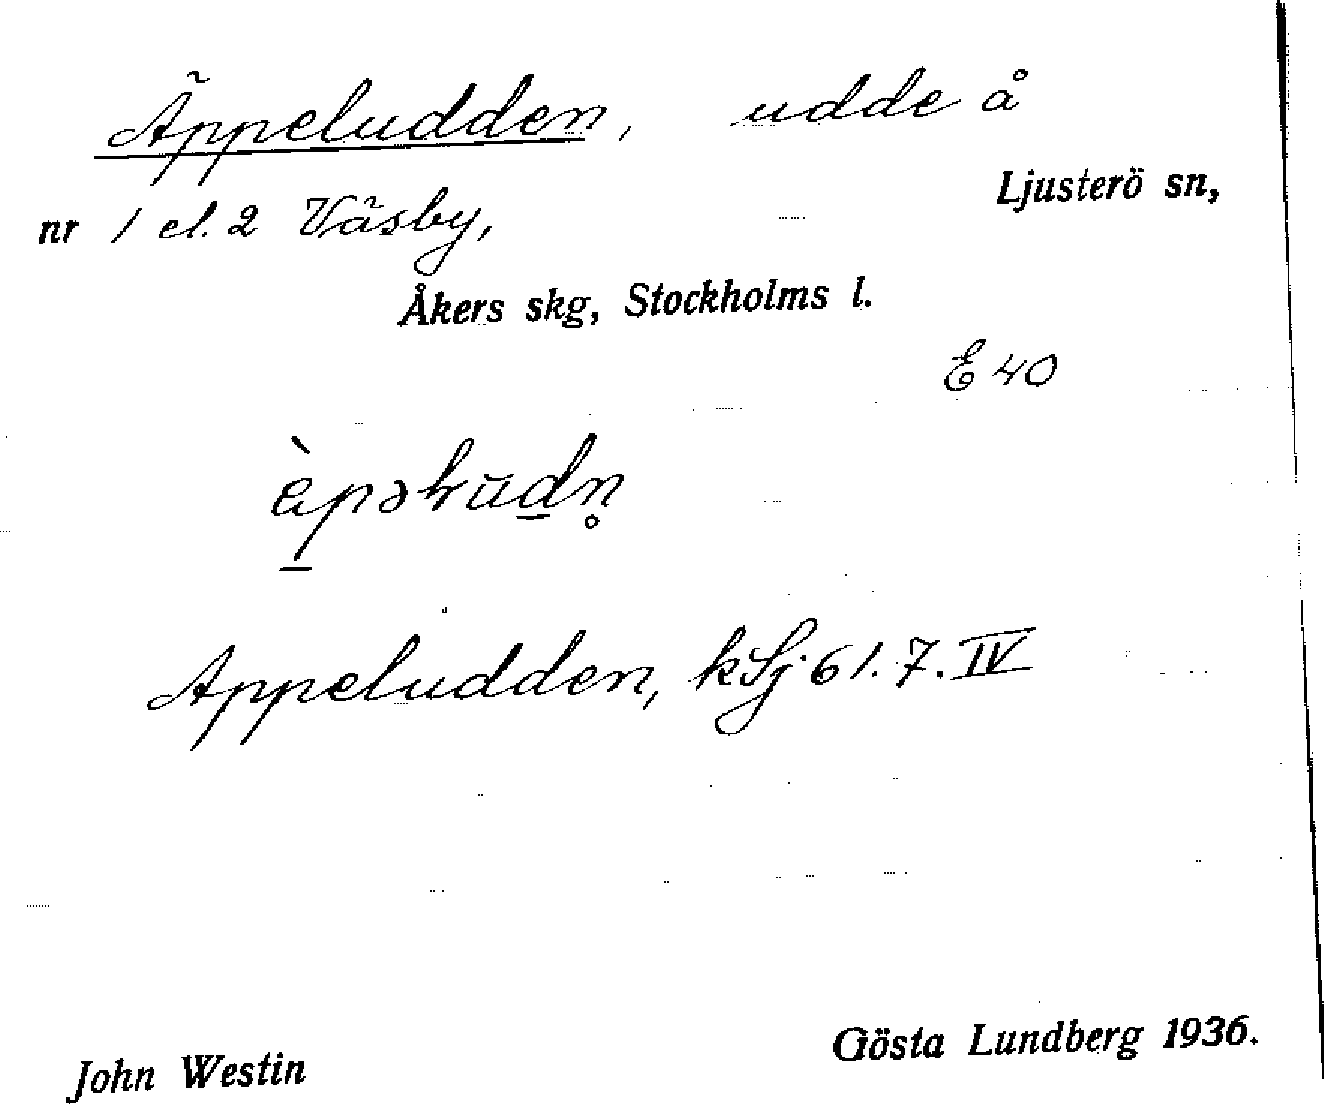 Äppeludden, udde å
Ljusterö sn,
nr 1 el. 2 Väsby,
Åkers skg, Stockholms l.
E 40
Appeludden, kSj 61.7.IV
Gösta Lundberg 1936.
John Westin